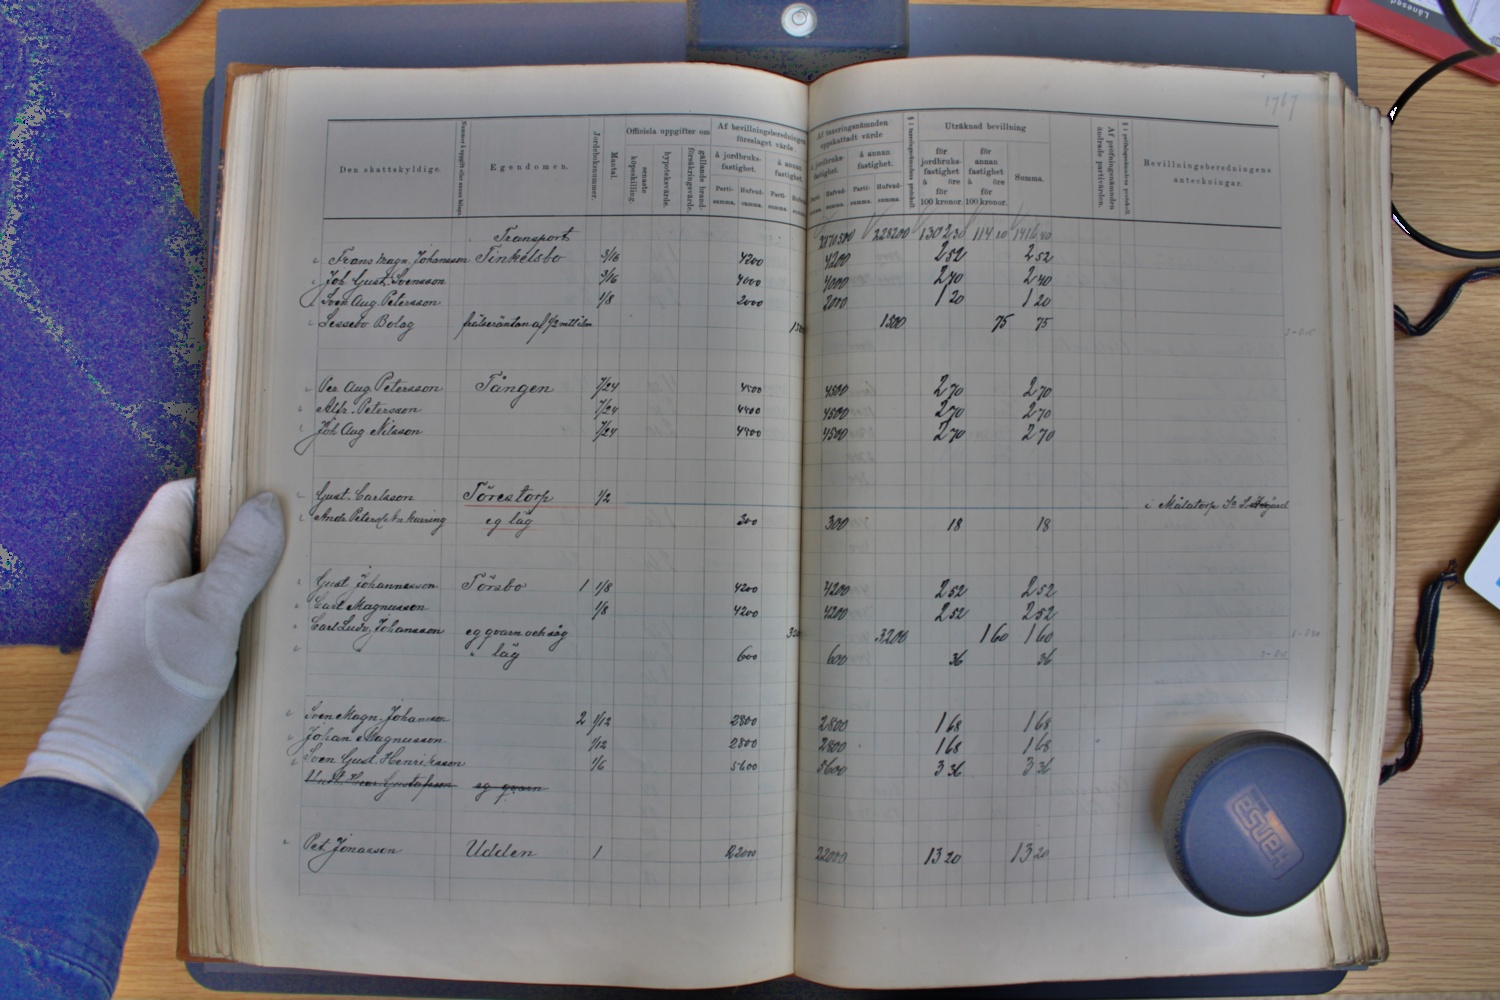 1767
Den skattskyldige.
Egendomen.
Jordeboksnummer.
Mantal.
Officiela uppgifter om
senaste köpeskilling.
hypoteksvärde.
gällande brandförsäkringsvärde.
Af bevillningsberedningen föreslaget värde
å jordbruksfastighet.
å annan fastighet.
Partisumma. Hufvudsumma. Partisumma.
Af taxeringsnämnden uppskattadt värde
å jordbruksfastighet. å annan fastighet.
Hufvudsumma. Partisumma. Hufvudsumma.
Uträknad bevillning
för jordbruksfastighet å öre för 100 kronor.
för annan fastighet å öre för 100 kronor.
Summa.
Af pröfningsnämnden ändrade partivärden.
Bevillningsberedningens anteckningar.
Transport 225200 1302 30 114 10 1416 40
Frans Magn. Johansson Tinkelsbo 3/16 4200 4200 2 52 2 52
Joh. Gust. Svensson 3/16 4000 4000 2 40 2 40
Sven Aug. Petersson 1/8 2000 2000 1 20 1 20
Lessebo Bolag frälseräntan af 1/2 mtl 1500 75 75
Per Aug. Petersson Tången 7/24 4500 4500 2 70 2 70
Alfr. Petersson 7/24 4500 4500 2 70 2 70
Joh. Aug. Nilsson 7/24 4500 4500 2 70 2 70
Gust. Carlsson Törestorp 1/2 i Målatorp
eg läg 300 300 18 18
Gust. Johannesson Törsbo 1 1/8 4200 4200 2 52 2 52
Carl Magnusson 1/8 4200 4200 2 52 2 52
Carl Ludv. Johansson eg qvarn och såg 3200 1 60 1 60
" " läg 600 600 36 36
Sven Magn. Johansson 2 1/12 2800 2800 1 68 1 68
Johan Magnusson 1/12 2800 2800 1 68 1 68
Sven Gust. Henriksson 1/6 5600 5600 3 36 3 36
Gustafsson eg qvarn
Pet. Jonasson Udden 1 22000 22000 13 20 13 20
Hansa